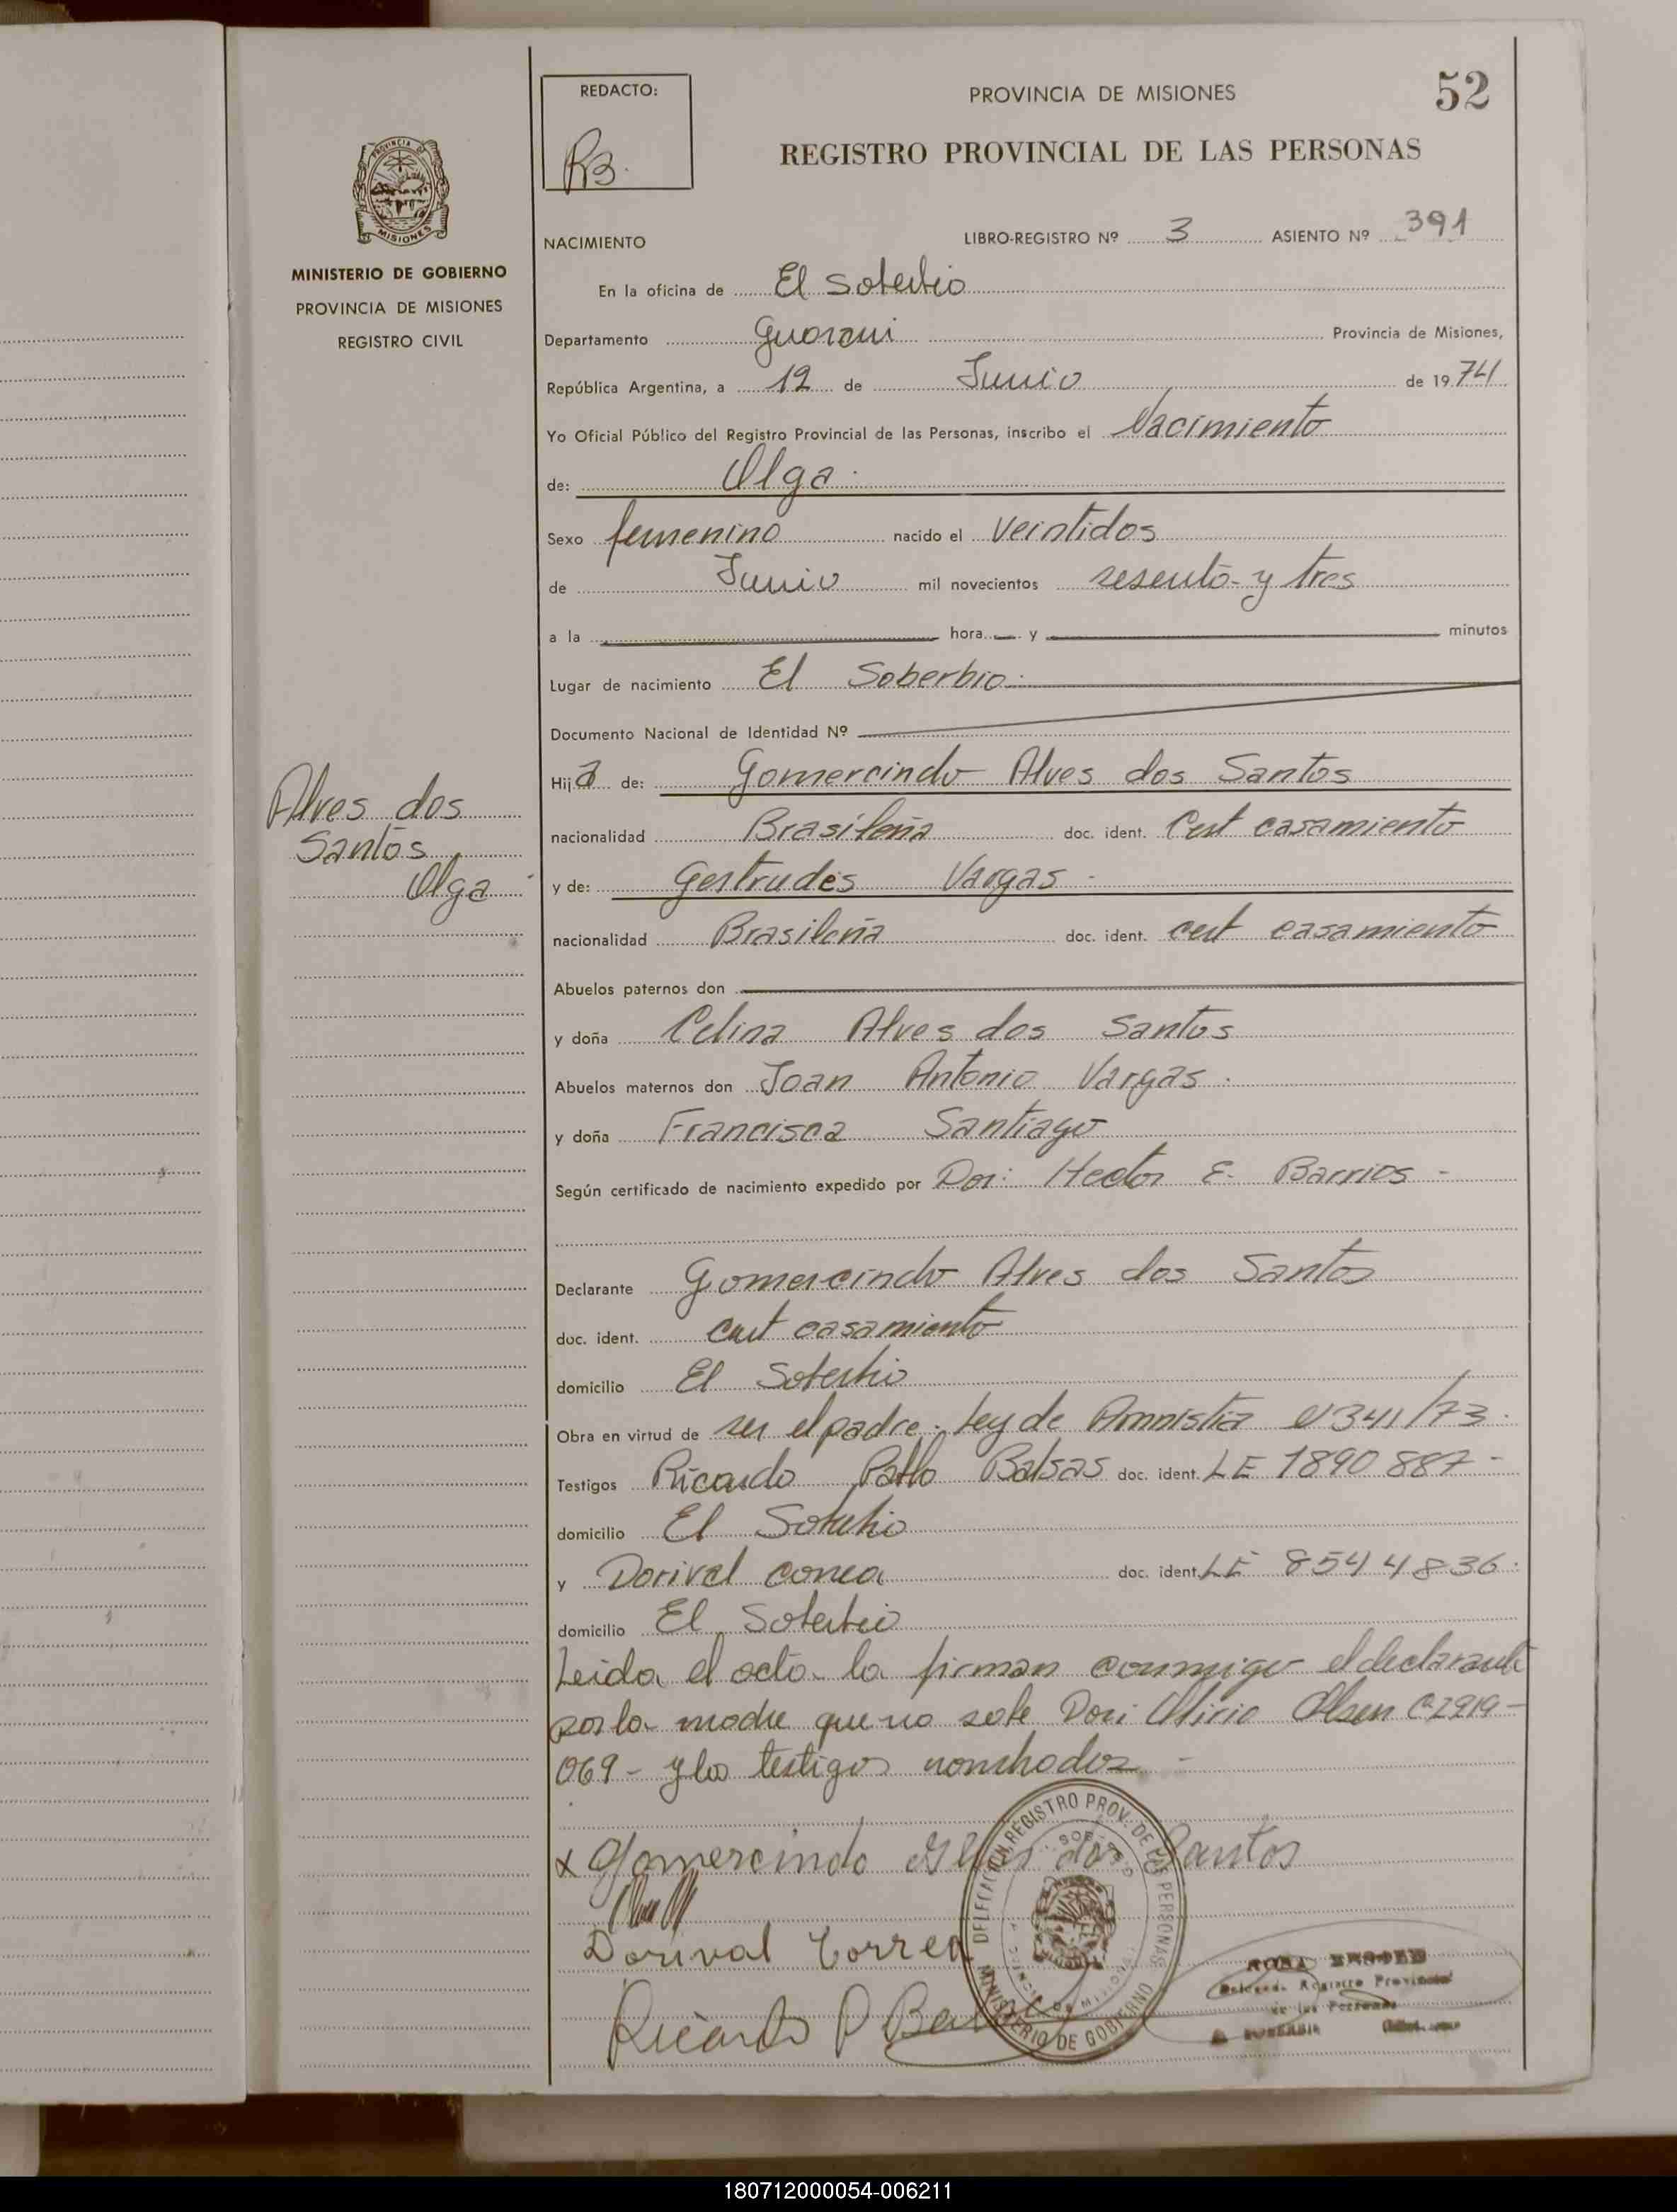 52
REDACTO:
PROVINCIA DE MISIONES
REGISTRO PROVINCIAL DE LAS PERSONAS
PROVINCIA DE
MISIONES
MINISTERIO DE GOBIERNO
PROVINCIA DE MISIONES
REGISTRO CIVIL
NACIMIENTO
LIBRO-REGISTRO Nº 3 ASIENTO Nº 391
En la oficina de El Soberbio
Departamento Guarani Provincia de Misiones,
República Argentina, a 12 de Junio de 1974
Yo Oficial Público del Registro Provincial de las Personas, inscribo el Nacimiento
de: Olga
Sexo femenino nacido el veintidos
de Junio mil novecientos sesenta y tres
a la hora y minutos
Lugar de nacimiento El Soberbio
Documento Nacional de Identidad Nº
Hija de: Gomercindo Alves dos Santos
nacionalidad Brasileña doc. ident. Cert casamiento
y de: Gestrudes Vargas
nacionalidad Brasileña doc. ident. cert casamiento
Abuelos paternos don
y doña Celina Alves dos Santos
Abuelos maternos don Joan Antonio Vargas
y doña Francisca Santiago
Según certificado de nacimiento expedido por Dor: Hector E. Barrios -
Declarante Gomercindo Alves dos Santos
doc. ident. cert casamiento
domicilio El Soberbio
Obra en virtud de ser el padre. Ley de Amnistia 341/73.
Testigos Ricardo Pablo Balsas doc. ident. LE 1890 887 -
domicilio El Soberbio
y Dorival Correa doc. ident. LE 8544836.
domicilio El Soberbio
Leida el acta la firman conmigo el declarante
por la madre que no sabe Olsen 2919-
069 - y los testigos nombrados -
x Gomercindo Alves dos Santos
Dorival Correa
Ricardo P
DELEGACION REGISTRO PROV. DE LAS PERSONAS
MINISTERIO DE GOBIERNO
ROSA
Registro Provincial
de las Personas
Alves dos
Santos
Olga
180712000054-006211